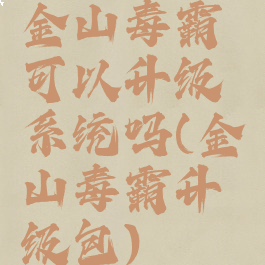 金山毒霸
可以升级
系统吗(金
山毒霸升
级包)